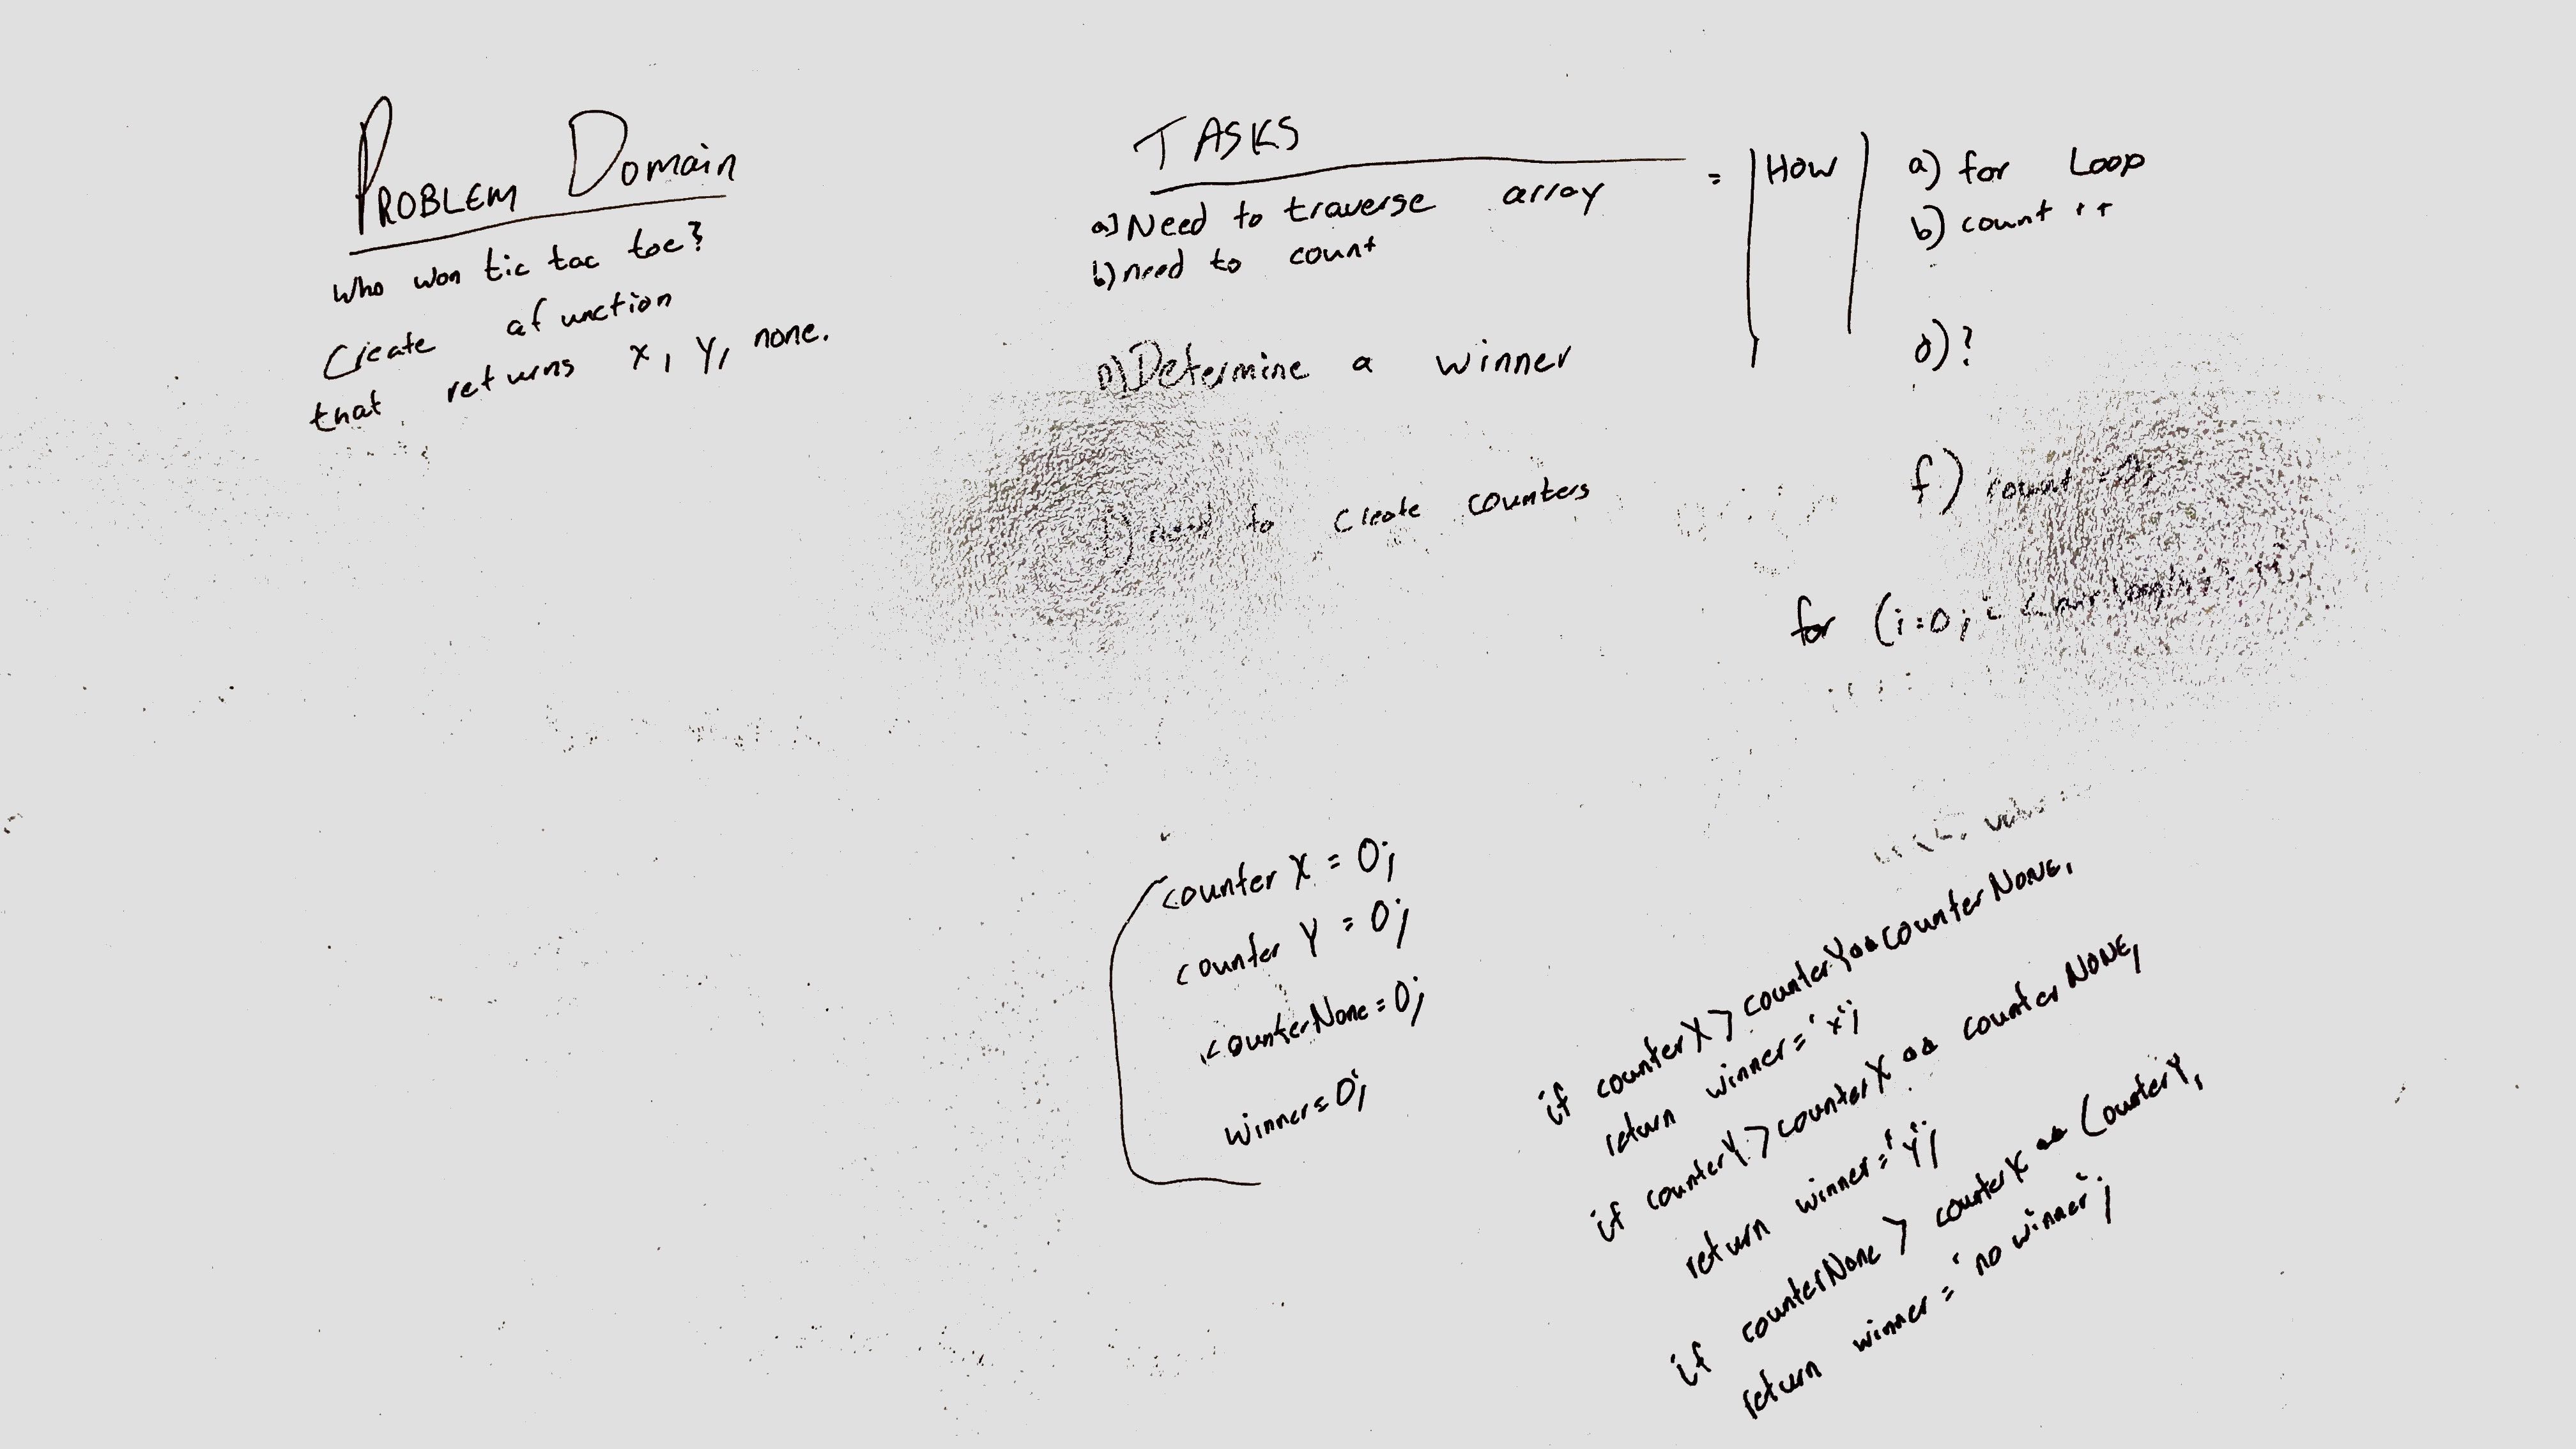 PROBLEM Domain
Who won tic tac toe?
Create a function
that returns x, y, none.
TASKS
a) Need to traverse array
b) need to count
D) Determine a winner
f) need to create counters
= | How |
a) for Loop
b) count ++
d) ?
f) count = 0;
for (i=0; i < arr.length;
value
counter X = 0;
counter Y = 0;
counterNone = 0;
winner = 0;
if counterX > counterY && counterNONE,
return winner = 'x';
if counterY > counterX && counterNONE,
return winner = 'Y';
if counterNone > counterX && CounterY,
return winner = 'no winner';